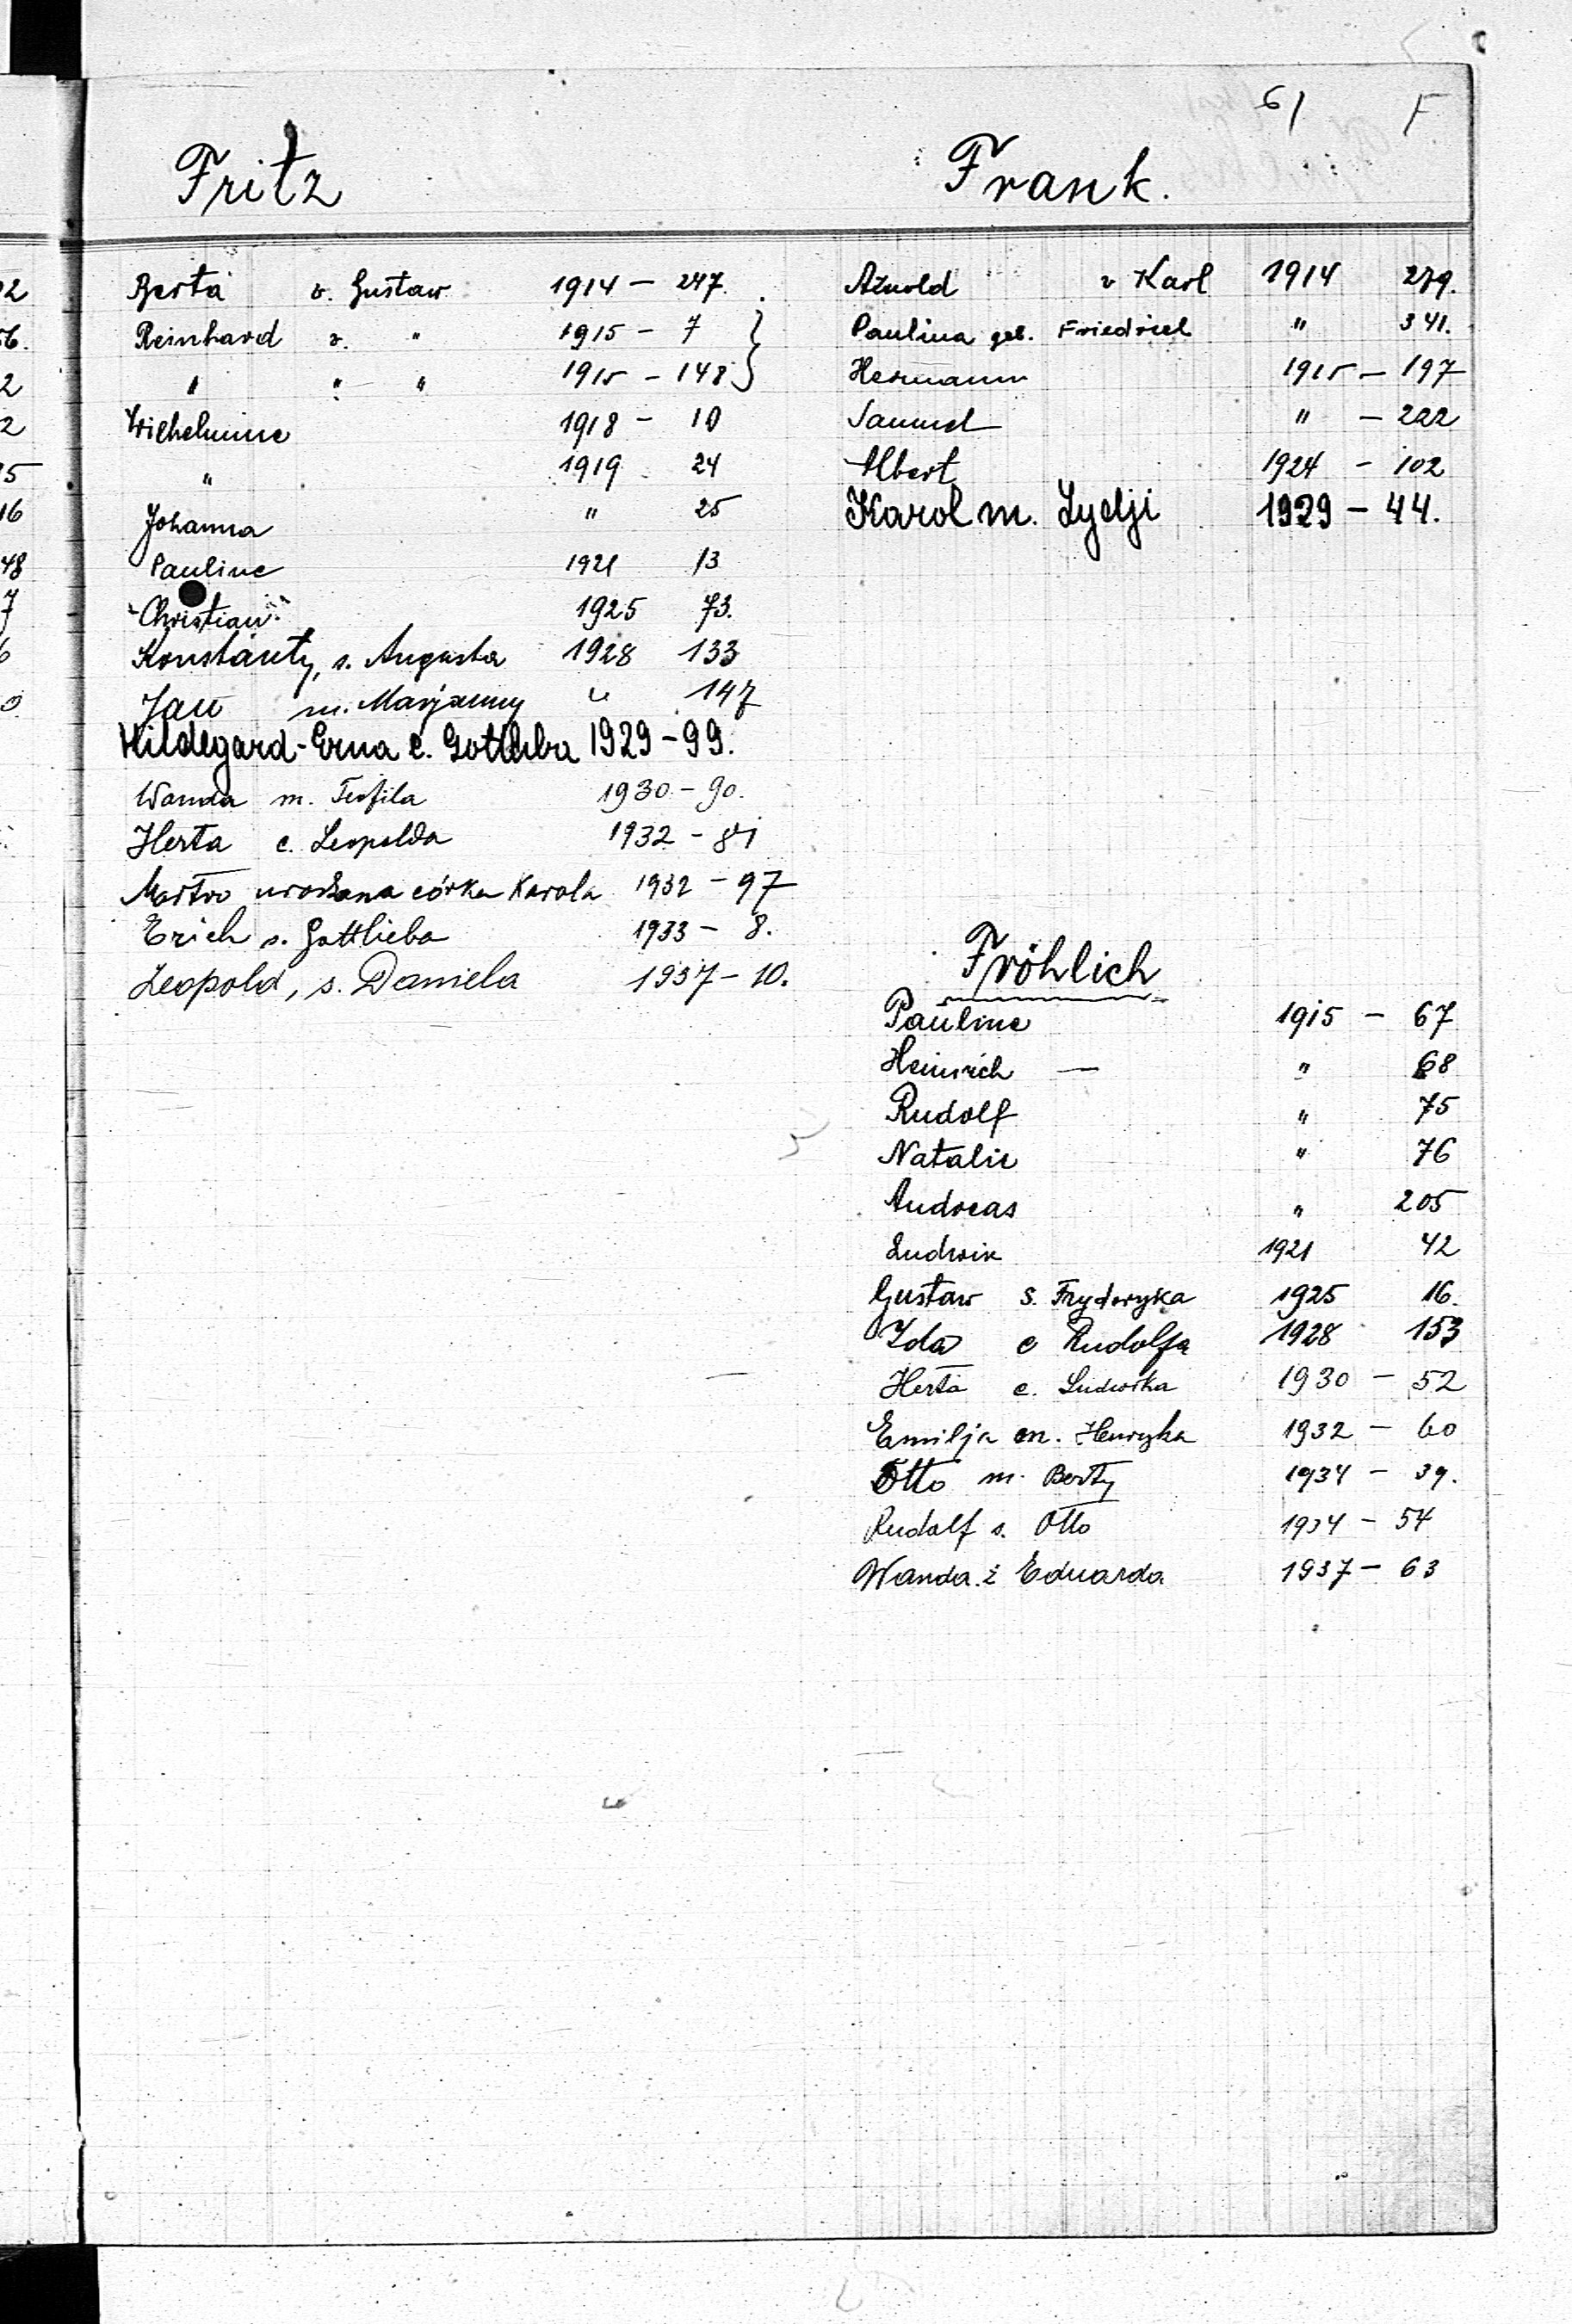 61 F
Fritz
Berta v. Gustaw 1914 - 247.
Reinhard v. " 1915 - 7 }
" " " 1915 - 148 }
Wilhelmine 1918 - 10
" 1919 24
Johanna " 25
Pauline 1921 13
Christian 1925 73.
Konstanty, s. Augusta 1928 133
Jan m. Marjanny " 147
Hildegard-Erna c. Gottliba 1929 - 99.
Wanda m. Teofila 1930 - 90.
Herta c. Leopolda 1932 - 81
Martwo urodzona córka Karola 1932 - 97
Erich s. Gottlieba 1933 - 8.
Leopold, s. Daniela 1937 - 10.
Frank.
Arnold v Karl 1914 279.
Paulina geb. Friedrich " 341.
Hermann 1915 - 197
Samuel " - 222
Albert 1924 - 102
Karol m. Lydji 1929 - 44.
Fröhlich
Pauline 1915 - 67
Heinrich — " 68
Rudolf " 75
Natalie " 76
Andreas " 205
Ludwik 1921 42
Gustaw s. Fryderyka 1925 16.
Ida c Rudolfa 1928 153
Herta c. Ludwika 1930 - 52
Emilja m. Henryka 1932 - 60
Otto m. Berty 1934 - 39.
Rudolf s. Otto 1934 - 54
Wanda ż Eduarda 1937 - 63